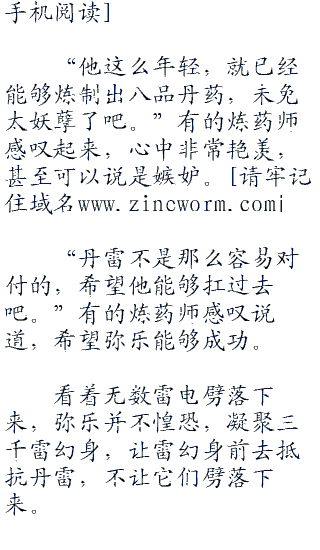 手机阅读]
“他这么年轻，就已经
能够炼制出八品丹药，未免
太妖孽了吧。”有的炼药师
感叹起来，心中非常艳羡，
甚至可以说是嫉妒。[请牢记
住域名www.zincworm.com|
“丹雷不是那么容易对
付的，希望他能够扛过去
吧。”有的炼药师感叹说
道，希望弥乐能够成功。
看着无数雷电劈落下
来，弥乐并不惶恐，凝聚三
千雷幻身，让雷幻身前去抵
抗丹雷，不让它们劈落下
来。